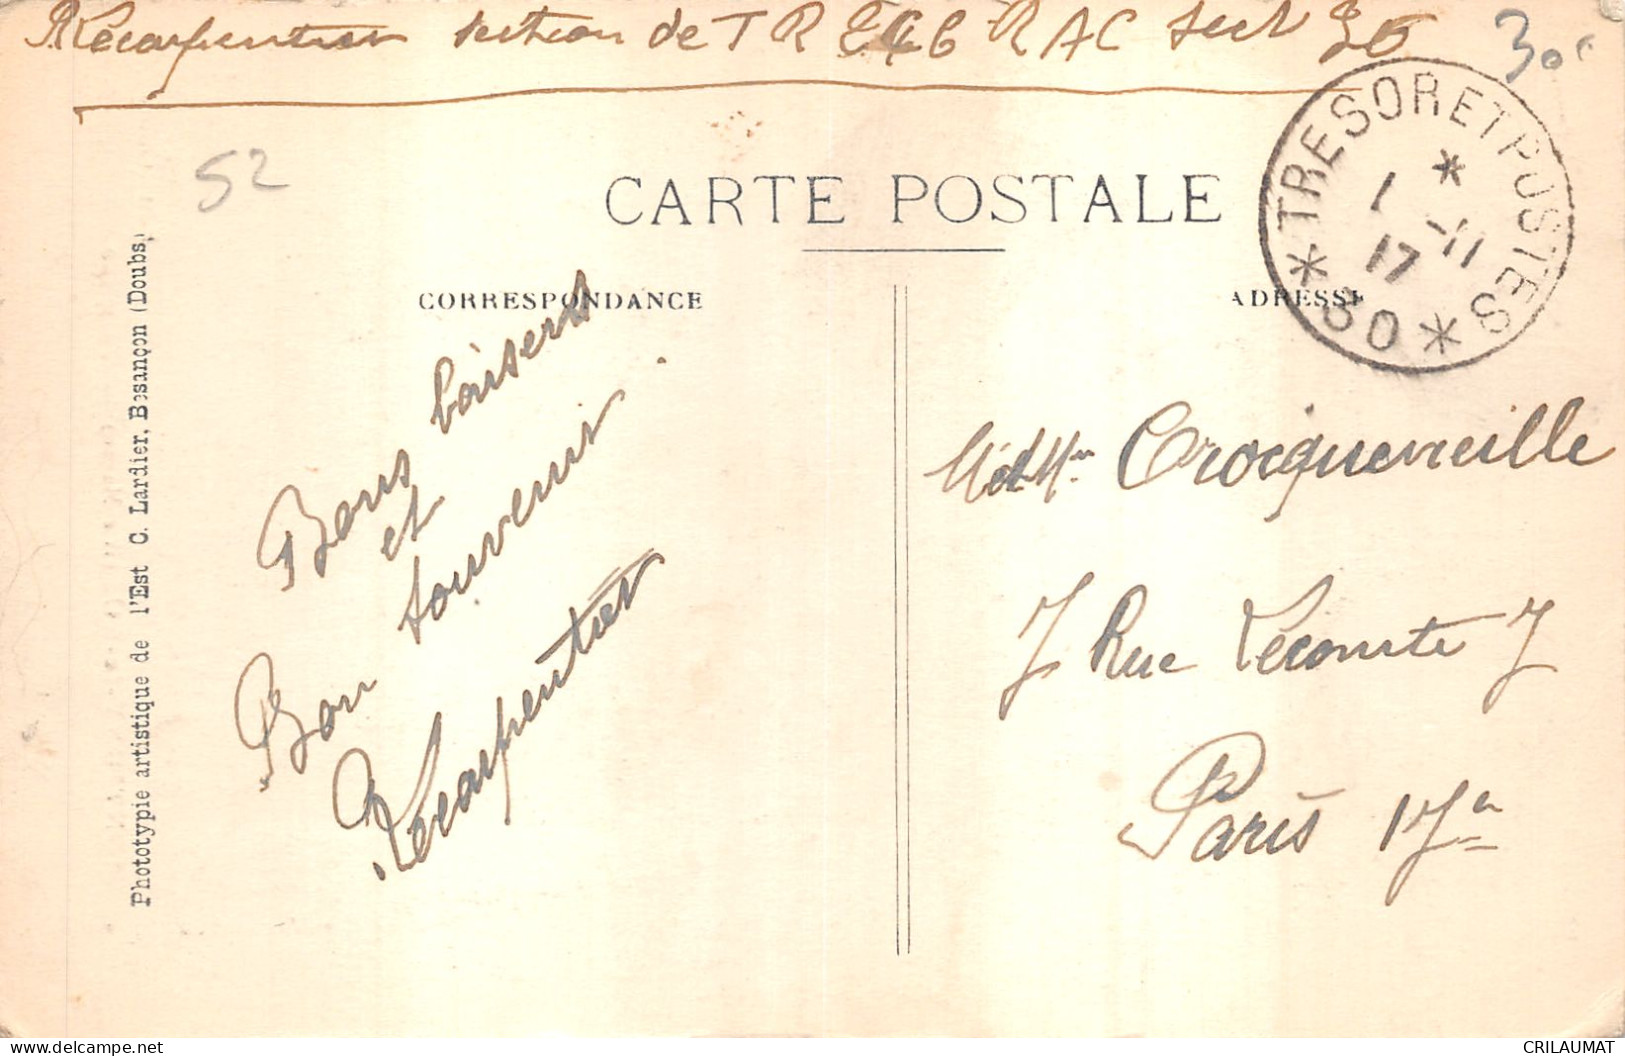 RLecarpentier section de TR E46 RAC Sect 30
30c
52
CARTE POSTALE
CORRESPONDANCE
ADRESSE
* TRESOR ET POSTES *
*
1 -11
17
30
Bons baisers
et
Bon souvenir
RLecarpentier
M et Mme Crocquevieille
7 Rue Lecomte 7
Paris 17e
Phototypie artistique de l'Est C. Lardier, Besançon (Doubs)
CRILAUMAT